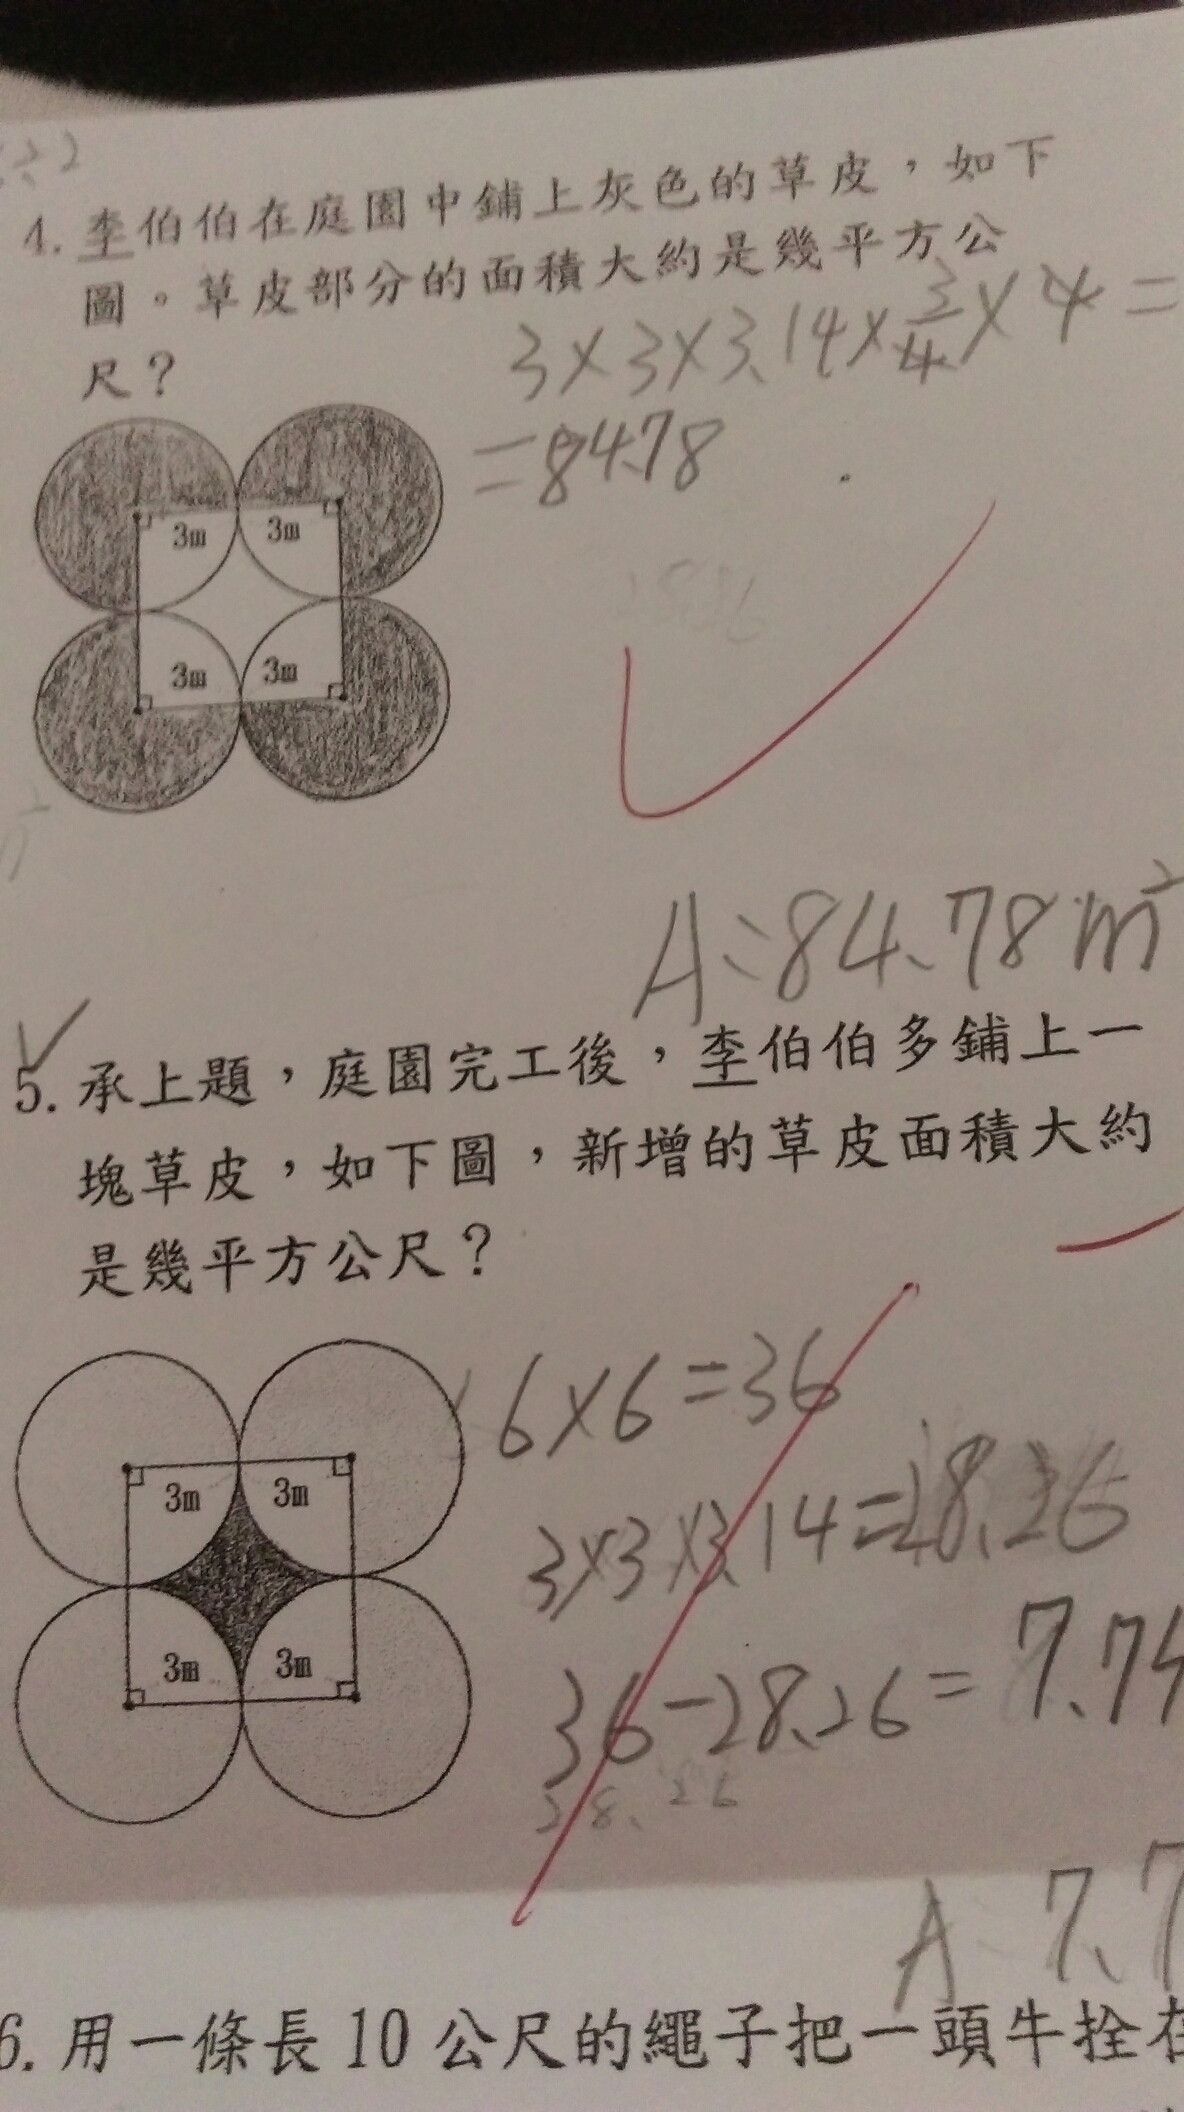 4. 李伯伯在庭園中鋪上灰色的草皮，如下
圖。草皮部分的面積大約是幾平方公
尺？
3×3×3.14×3/4×4=
=84.78
3m 3m
3m 3m
A:84.78m²
5. 承上題，庭園完工後，李伯伯多鋪上一
塊草皮，如下圖，新增的草皮面積大約
是幾平方公尺？
6×6=36
3m 3m
3×3×3.14=28.26
3m 3m
36-28.26=7.74
28.26
A 7.7
6. 用一條長10公尺的繩子把一頭牛拴在